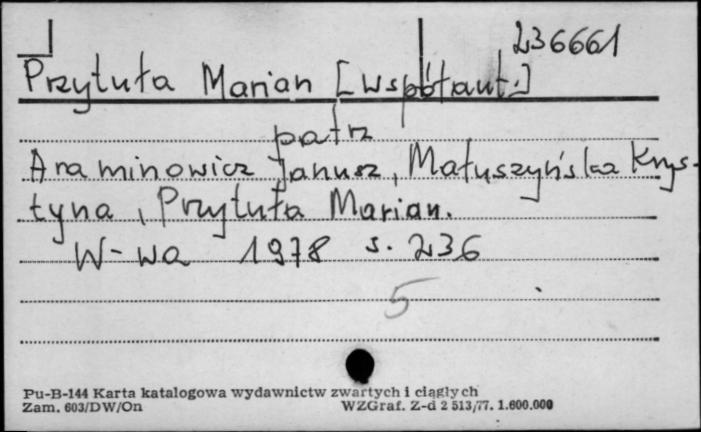 236661
Przytuła Marian [współaut.]
patrz
Araminowicz Janusz, Małuszyńska Krys-
tyna, Przytuła Marian.
W-wa 1978 s. 236
5
Pu-B-144 Karta katalogowa wydawnictw zwartych i ciągłych
Zam. 603/DW/On WZGraf. Z-d 2 513/77. 1.600.000